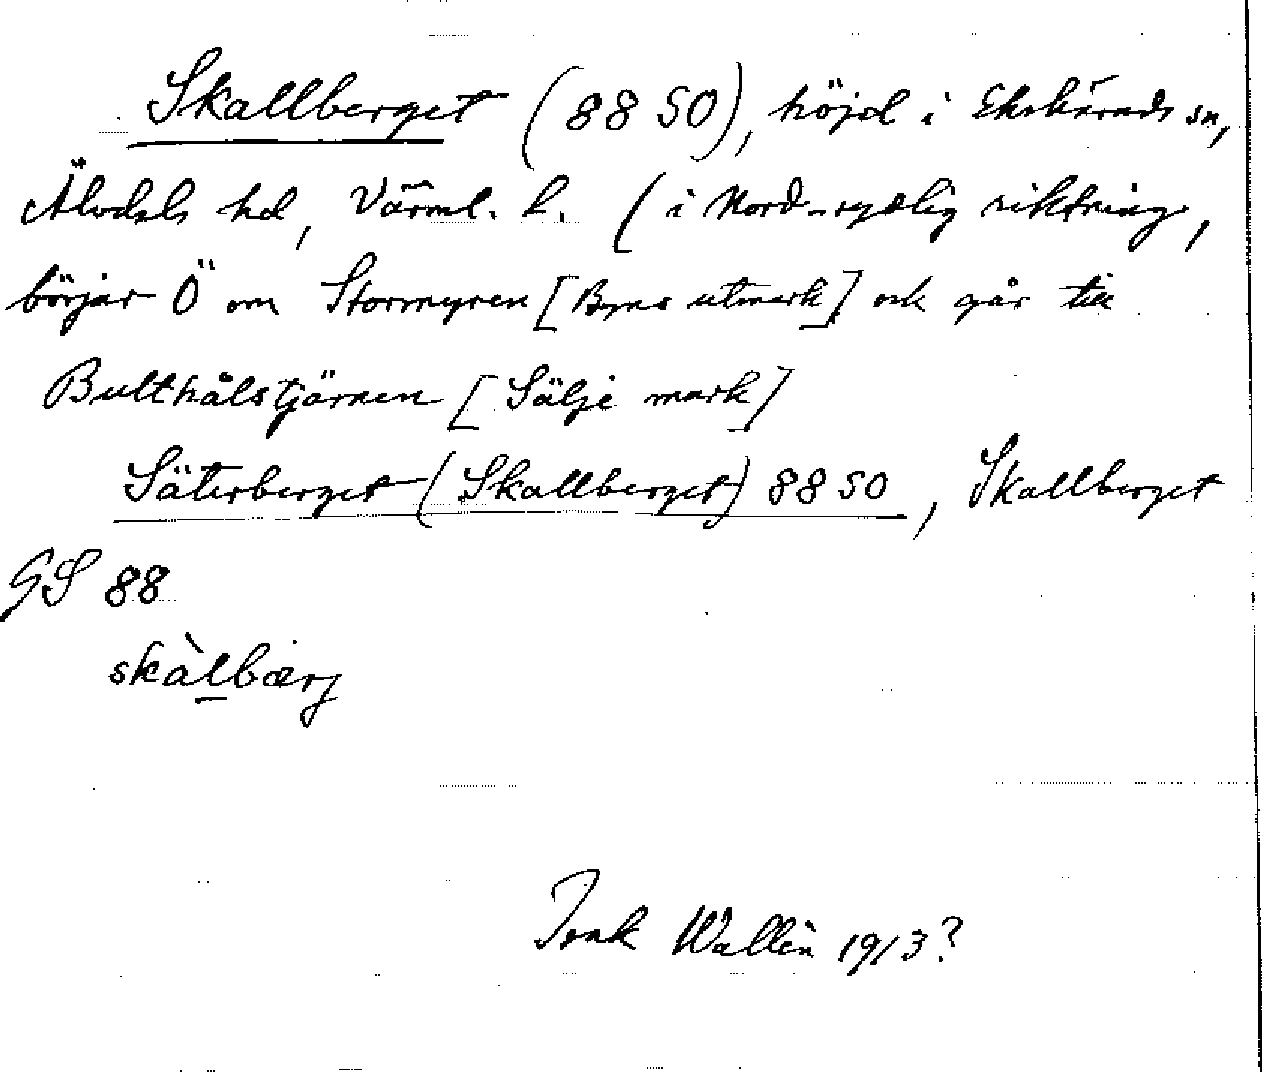 Skallberget (88 SO), höjd i Ekshärads sn,
Älvdals hd, Värml. l. (i Nord-sydlig riktning,
börjar Ö om Stormyren [Byns utmark] och går till
Bulthålstjärnen [Sälje mark]
Säterberget (Skallberget) 88 SO, Skallberget
GS 88
skàlbærj
Wallin 1913?